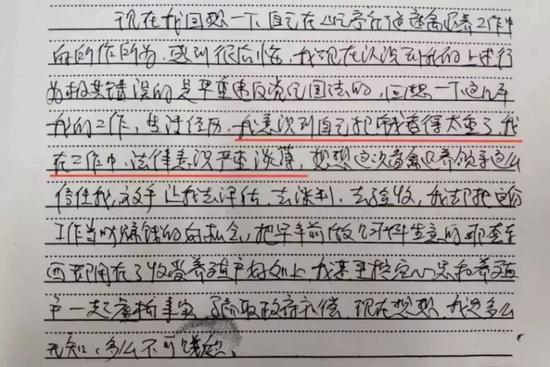 现在我回想一下自己在山区序行这畜禽退养工作中
的所作所为，感到很后悔，我现在认识到我的上述行
为极其错误的是严重违反党纪国法的，回想一下这几年
我的工作、生活经历，我意识到自己把钱看得太重了，我
在工作中，法律意识严重淡薄，想想这次畜禽退养领导这么
信任我，放手让我去评估、去谈判、去验收，我却把这份
工作当成赚钱的好机会，把早年前做饲料生意的那些东
西都用在了收受养殖户好处上，我甚至挖空心思和养殖
户一起虚构事实，套取政府补偿，现在想想，我是多么
无知、多么不可饶恕。